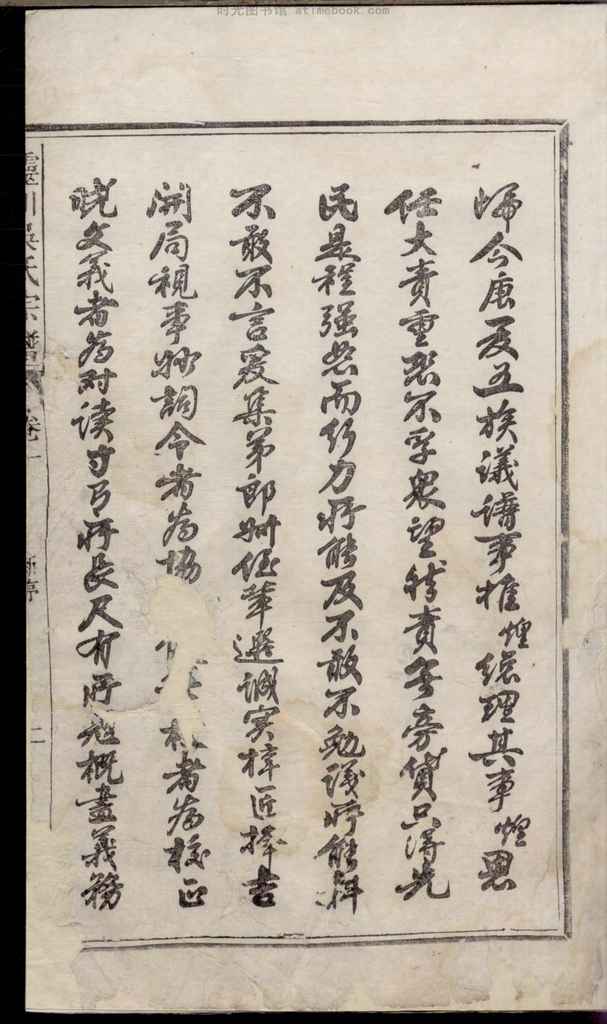 时光图书馆 atimebook.com
歸今庚夏五族議譜事推煌總理其事煌思
任大責重恐不孚衆望然責無旁貸只得先
民是程强勉而行力所能及不敢不勉議所能
不敢不言爰集弟郎姪輩選誠实梓匠擇吉
開局視事妙詞令者為協者為校正
晓文義者為对读寸有所長尺有所短概盡義務
靈川吳氏宗譜 卷一 二